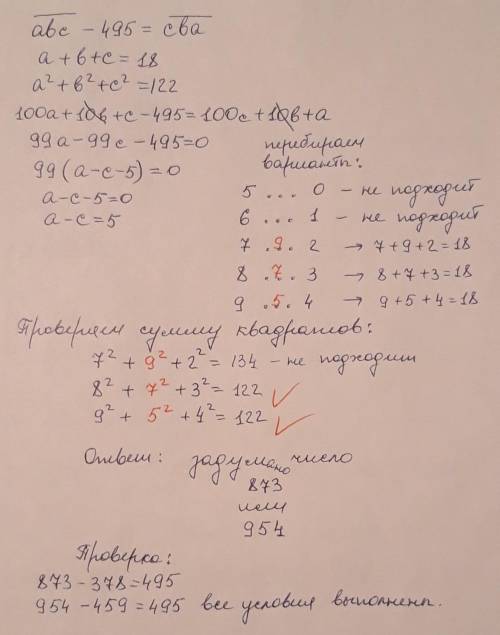 abc - 495 = cва
a + в + c = 18
a² + в² + c² = 122
100a + 10в + c - 495 = 100c + 10в + a
99a - 99c - 495 = 0
99 (a - c - 5) = 0
a - c - 5 = 0
a - c = 5
перебираем
варианты:
5 ... 0 - не подходит
6 ... 1 - не подходит
7 .9. 2 → 7 + 9 + 2 = 18
8 .7. 3 → 8 + 7 + 3 = 18
9 .5. 4 → 9 + 5 + 4 = 18
Проверяем сумму квадратов:
7² + 9² + 2² = 134 - не подходит
8² + 7² + 3² = 122 ✓
9² + 5² + 4² = 122 ✓
Ответ: задумано число
873
или
954
Проверка:
873 - 378 = 495
954 - 459 = 495 все условия выполнены.